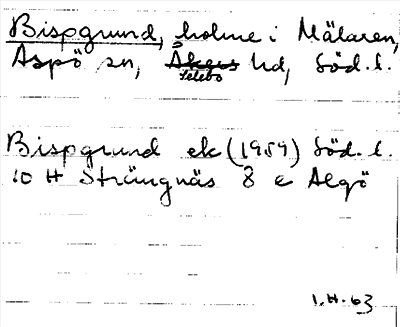 Bispgrund, holme i Mälaren,
Aspö sn, Åkers hd, Söd. l.
Selebo
Bispgrund ek (1959) Söd. l.
10 H Strängnäs 8 e Algö
1.H.63